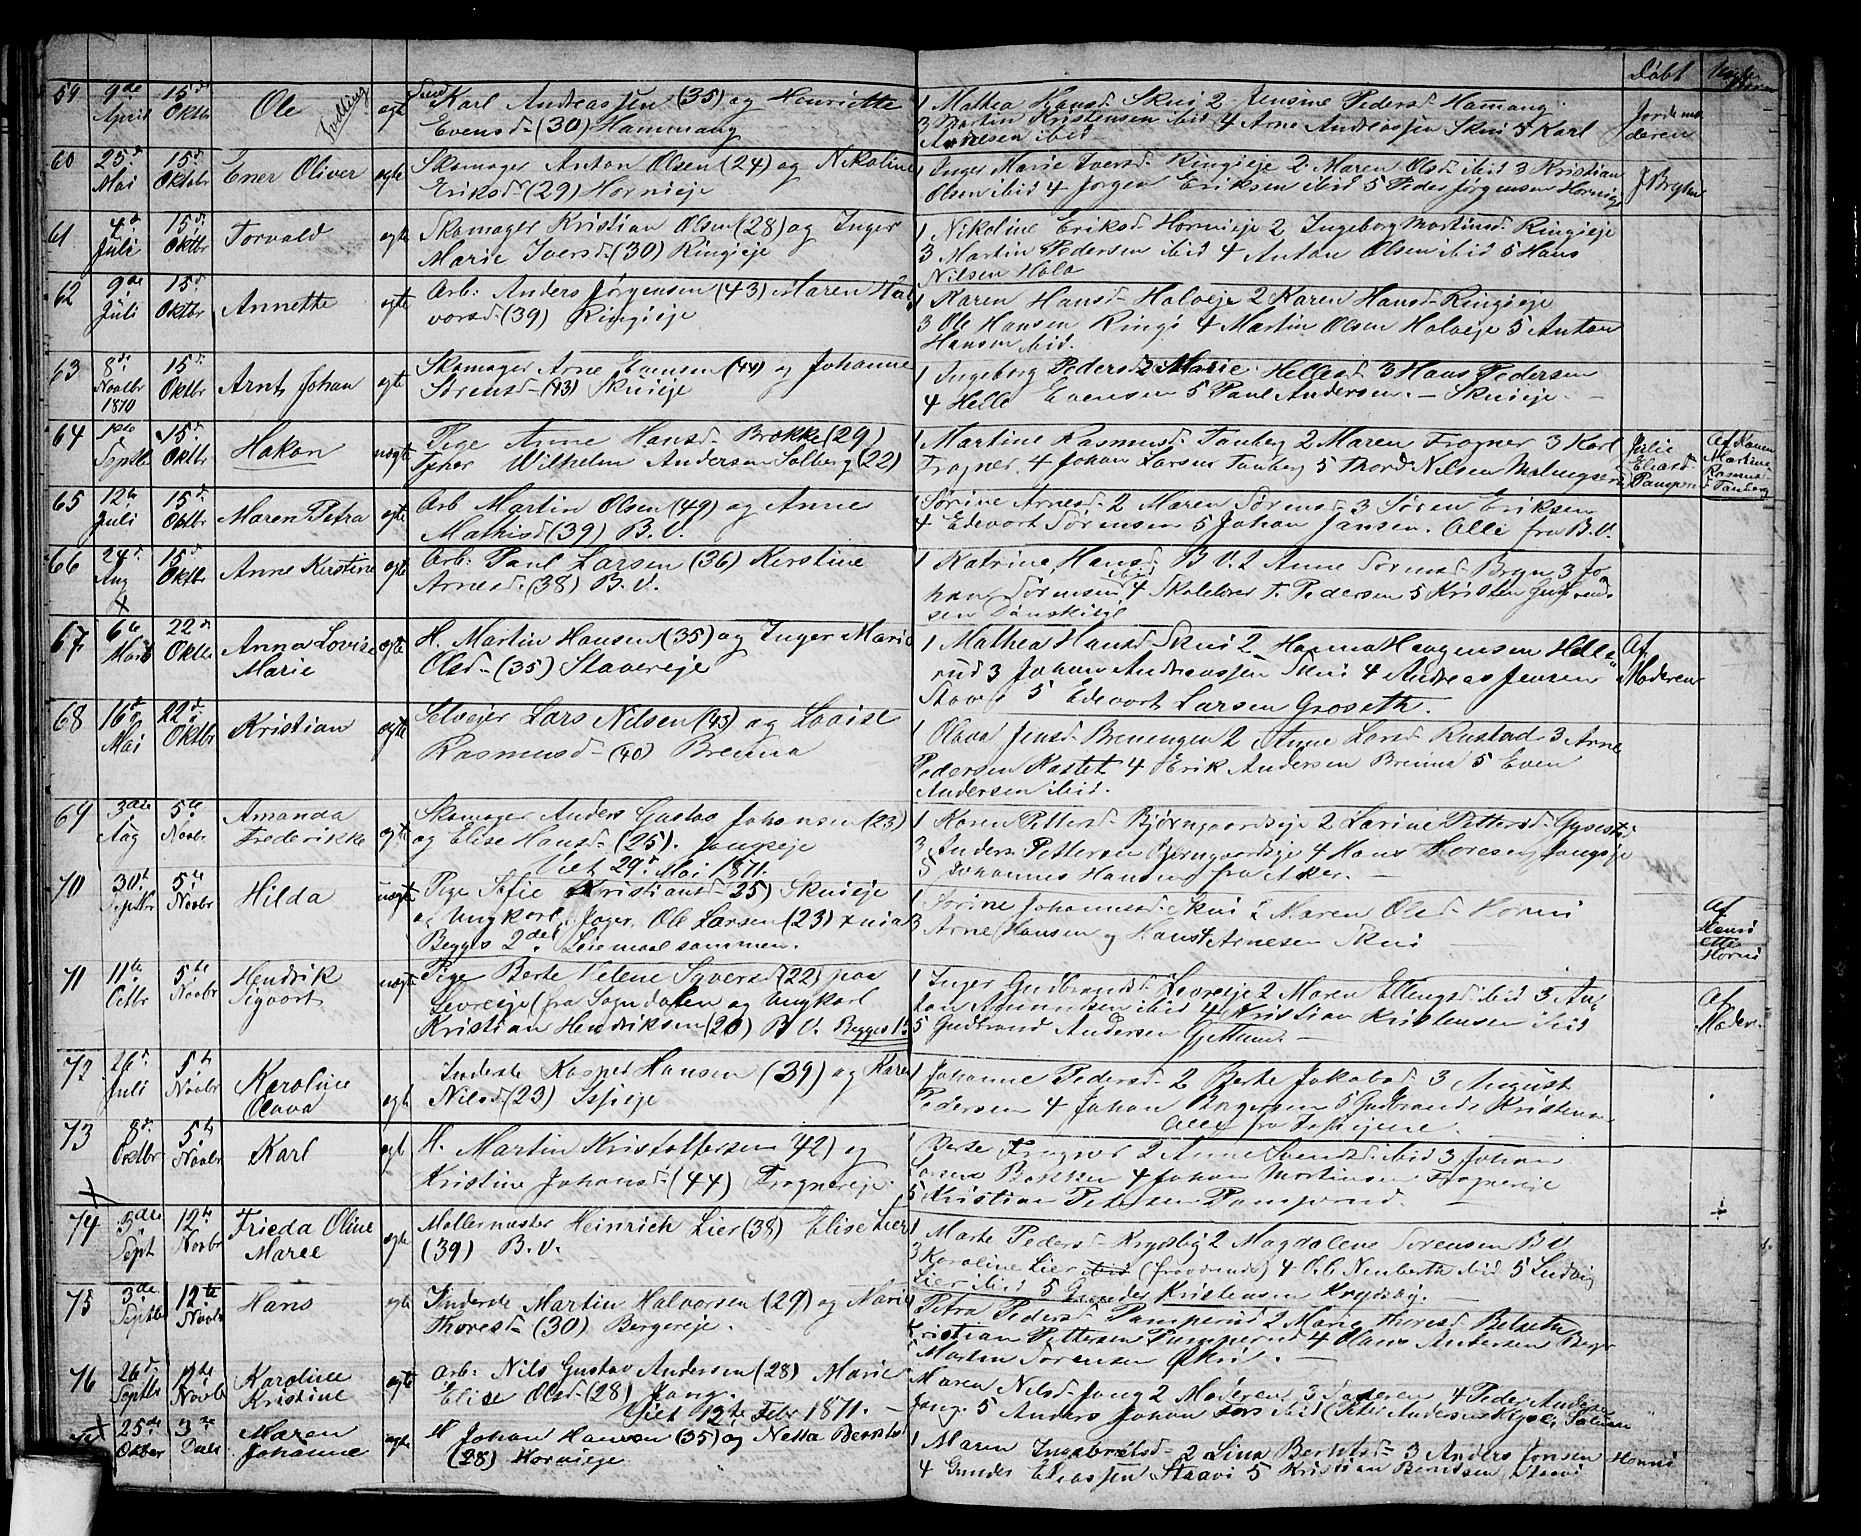 Døbt
59 9de April 15d Oktbr Ole Tvilling ægte Karl Andreassen (35) og Henriette
Evensd. (30) Hammang
1 Mathea Hansd. Skui 2 Jensine Pedersd. Hamang
3 Martin Kristensen ibid 4 Arne Andreassen Skui 5 Karl
Arnesen ibid
Jordemoderen
60 25d Mai 15d Oktobr Ener Oliver ægte Skomager Anton Olsen (24) og Nikoline
Eriksd. (29) Hornieje
1 Inger Marie Iversd. Ringieje 2 Maren Olsd. ibid 3 Kristian
Olsen ibid 4 Jørgen Eriksen ibid 5 Peder Jørgensen Hornieje
J. Bryhn
61 4d Juli 15d Oktbr Torvald ægte Skomager Kristian Olsen (28) og Inger
Marie Iversd. (30) Ringieje
1 Nikoline Eriksd. Hornieje 2 Ingeborg Martinsd. Ringieje
3 Martin Pedersen ibid 4 Anton Olsen ibid 5 Hans
Nilsen Hola
62 9de Juli 15d Oktbr Annette ægte Arb: Anders Jørgensen (43) Maren Hal-
vorsd. (39) Ringieje
1 Karen Hansd. Holveje 2 Karen Hansd. Ringieje
3 Ole Hansen Ringi 4 Martin Olsen Holveje 5 Anton
Hansen ibid.
63 8d Novbr 1870 15d Oktbr Arnt Johan ægte Skomager Arne Evensen (44) og Johanne
Sørensd. (43) Skuieje
1 Ingeborg Pedersd. 2 Marie Hellesd. 3 Hans Pedersen
4 Helle Evensen 5 Paul Andersen. – Skuieje. –
64 Septbr 15d Oktbr Hakon uægte Pige Anne Hansd. Brøkke (29)
Wilhelm Andersen Solberg (22)
1 Martine Rasmusd. Tanberg 2 Maren Frogner 3 Karl
Frogner, 4 Johan Larsen Tanberg 5 Thord Nilsen
Julie Eliasd. Pamperud
Af Konen Martine Rasmusd. Tanberg
65 12te Juli 15d Oktbr Maren Petra ægte Arb Martin Olsen (49) og Anne
Mathisd. (39) B.V.
Sørine Arnesd. 2 Maren Sørensd. 3 Søren Eriksen
4 Edevart Sørensen 5 Johan Jansen. Alle fra B.V.
66 24d Aug 15d Oktbr Anne Kirstine ægte Arb: Paul Larsen (36) Kirstine
Arnesd. (38) B.V.
1 Katrine Hansd. B.V. 2 Anne Sørensd. Bryn 3 Jo-
han Sørensen ibid 4 Skolelærer T. Pedersen 5 Kristen Gulbrand-
sen Dønskieje
67 6te 22d Oktbr Anna Lovise
Marie ægte H. Martin Hansen (35) og Inger Marie
Olsd. (35) Stavereje
1 Mathea Hansd. Skui 2 Hanna Haagensen Helle-
rud 3 Johan Andreassen Skui 4 Andreas Jensen
Staver 5 Edevart Larsen Groseth.
Af Moderen
68 16d Mai 22d Oktbr Kristian ægte Selveier Lars Nilsen (43) og Lovise
Rasmusd. (40) Brenna
1 Olava Jensd. Breningen 2 Anne Larsd. Rustad 3 Arne
Pedersen Kastet 4 Erik Andersen Brenna 5 Even
Andersen ibid.
69 3die Aug 5te Novbr Amanda
Frederikke ægte Skomager Anders Gustav Johansen (23)
og Elise Hansd. (25). Jongseje
Viet 29d Mai 1871.
1 Karen Pettersd. Bjørngaardseje 2 Larine Pettersd.
3 Anders Pettersen Bjørngaardseje 4 Hans Thoresen Jongseje
5 Johannes Hansen fra Asker. –
70 30te Septbr 5te Novbr Hilda uægte Pige Sofie Kristiansd. 25) Skuieje
og Ungkarl, Jæger Ole Larsen (23)
Begges 2det Leiermaal sammen.
1 Sørine Johannesd. Skui 2 Maren Olsd. Horni
3 Arne Hansen og Hans 4 Arnesen Skui
Af Henriette Horni
71 11te Octbr 5te Novbr Hendrik
Sigvart uægte Pige Berte Helene Syversd. (22) paa
Levreeje (fra Sogndalen og Ungkarl
Kristian Hendriksen (20) B.V. Begges 1ste
1 Inger Gudbrandsd. Levreeje 2 Maren Ellingsd. ibid 3 An-
ton Amundsen ibid 4 Kristian Kristensen ibid
5 Gudbrand Andersen Gjettum. –
Af Moder.
72 26d Juli 5te Novbr Karoline
Olava ægte Inderste Kasper Hansen (39) og Karen
Nilsd. (23) Isieje
1 Johanne Pedersd. 2 Berte Jakobsd. 3 August
Pedersen 4 Johan Borgersen 5 Gudbrand Kristensen
Alle fra Isieiene.
73 8d Oktbr 5te Novbr Karl ægte H. Martin Kristoffersen 42) og
Kristine Johansd. (44) Frognereje.
Berte Frogner 2 Anne Svendsd. ibid 3 Johan
Larsen Bakken 4 Johan Mortinsen Frognereje
5 Kristian Petersen Pamperud. –
74 3die Sept 12te Novbr Frieda Oline
Maree ægte Møllermester Heinrich Lier (38) Elise Lier
(39) B.V.
1 Marte Pedersd. Krydsby 2 Magdalene Sørensen B.V.
3 Karoline Lier ibid (fraværende) 4 O.C. Neuberth ibid 5 Ludvig
Lier ibid 5 Gunder Kristensen Krydsby.
75 3die Septbr 12te Novbr Hans ægte Inderste Martin Halvorsen (29) og Marie
Thoresd. (30) Bergereje.
Petra Pedersd. Pamperud 2 Marie Thoresd. Belseth
Kristian Pettersen Pamperud 4 Hans Andersen Berger
Martin Sørensen Skui. –
76 26d Septbr 12te Novbr Karoline
Kristine ægte Arb: Nils Gustav Andersen (28) Marie
Elise Olsd. (28) Jong.
Viet 12te Febr 1871. –
Maren Nilsd. Jong 2 Moderen 3 Faderen 4 Peder Andersen
Jong. 5 Anders Johan Fors ibid
25de Oktber 3die Maren
Johanne ægte H Johan Hansen (35) og Netta Berntsd.
(28) Hornieje
1 Maren Ingebretsd. 2 Lina Berntsd. 3 Anders Jonsen Horni
4 Gunder Eliassen Staavi 5 Kristian Berntsen Staavi